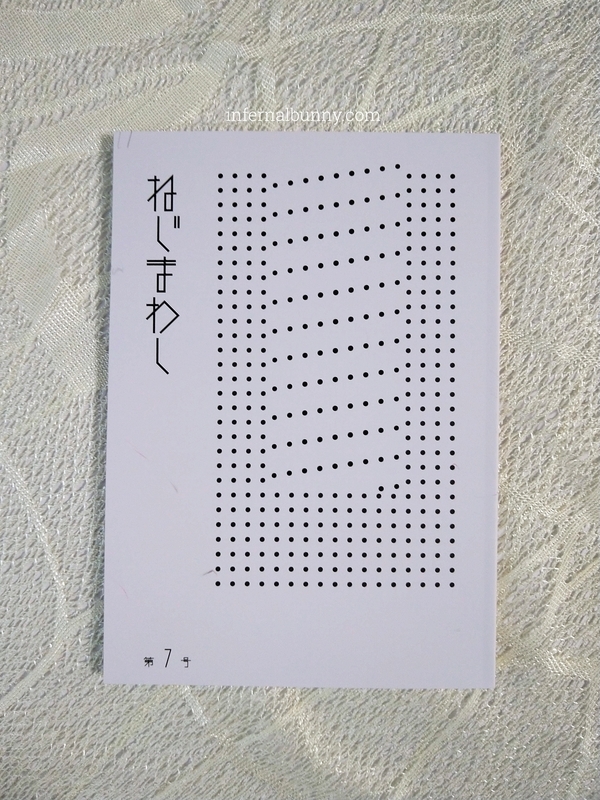 infernalbunny.com
ねじまわし
第7号